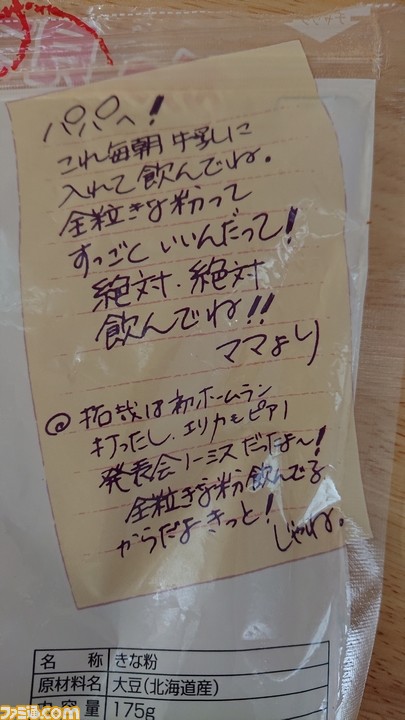 パパへ!
これ毎朝牛乳に
入れて飲んでね。
全粒きな粉って
すっごくいいんだって!
絶対・絶対
飲んでね!!
ママより
@拓哉は初ホームラン
打ったし、エリカもピアノ
発表会ノーミスだったよ〜!
全粒きな粉飲んでる
からだよきっと!
じゃね。
名 称 きな粉
原材料名 大豆(北海道産)
内容量 175g
ファミ通.com